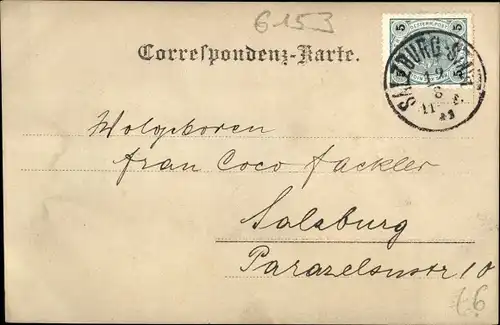 6153
5 5
Correspondenz-Karte.
SALZBURG-STADT
19
6
11
Wolgeboren
frau Coco Fackler
Salzburg
Parazelsusstr 10